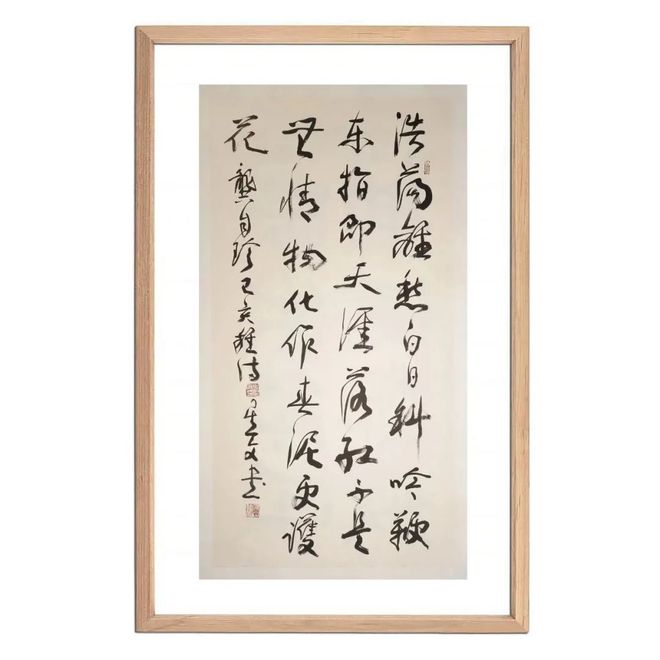 浩蕩離愁白日斜吟鞭
东指即天涯落红不是
無情物化作春泥更護
花龔自珍己亥雜詩书